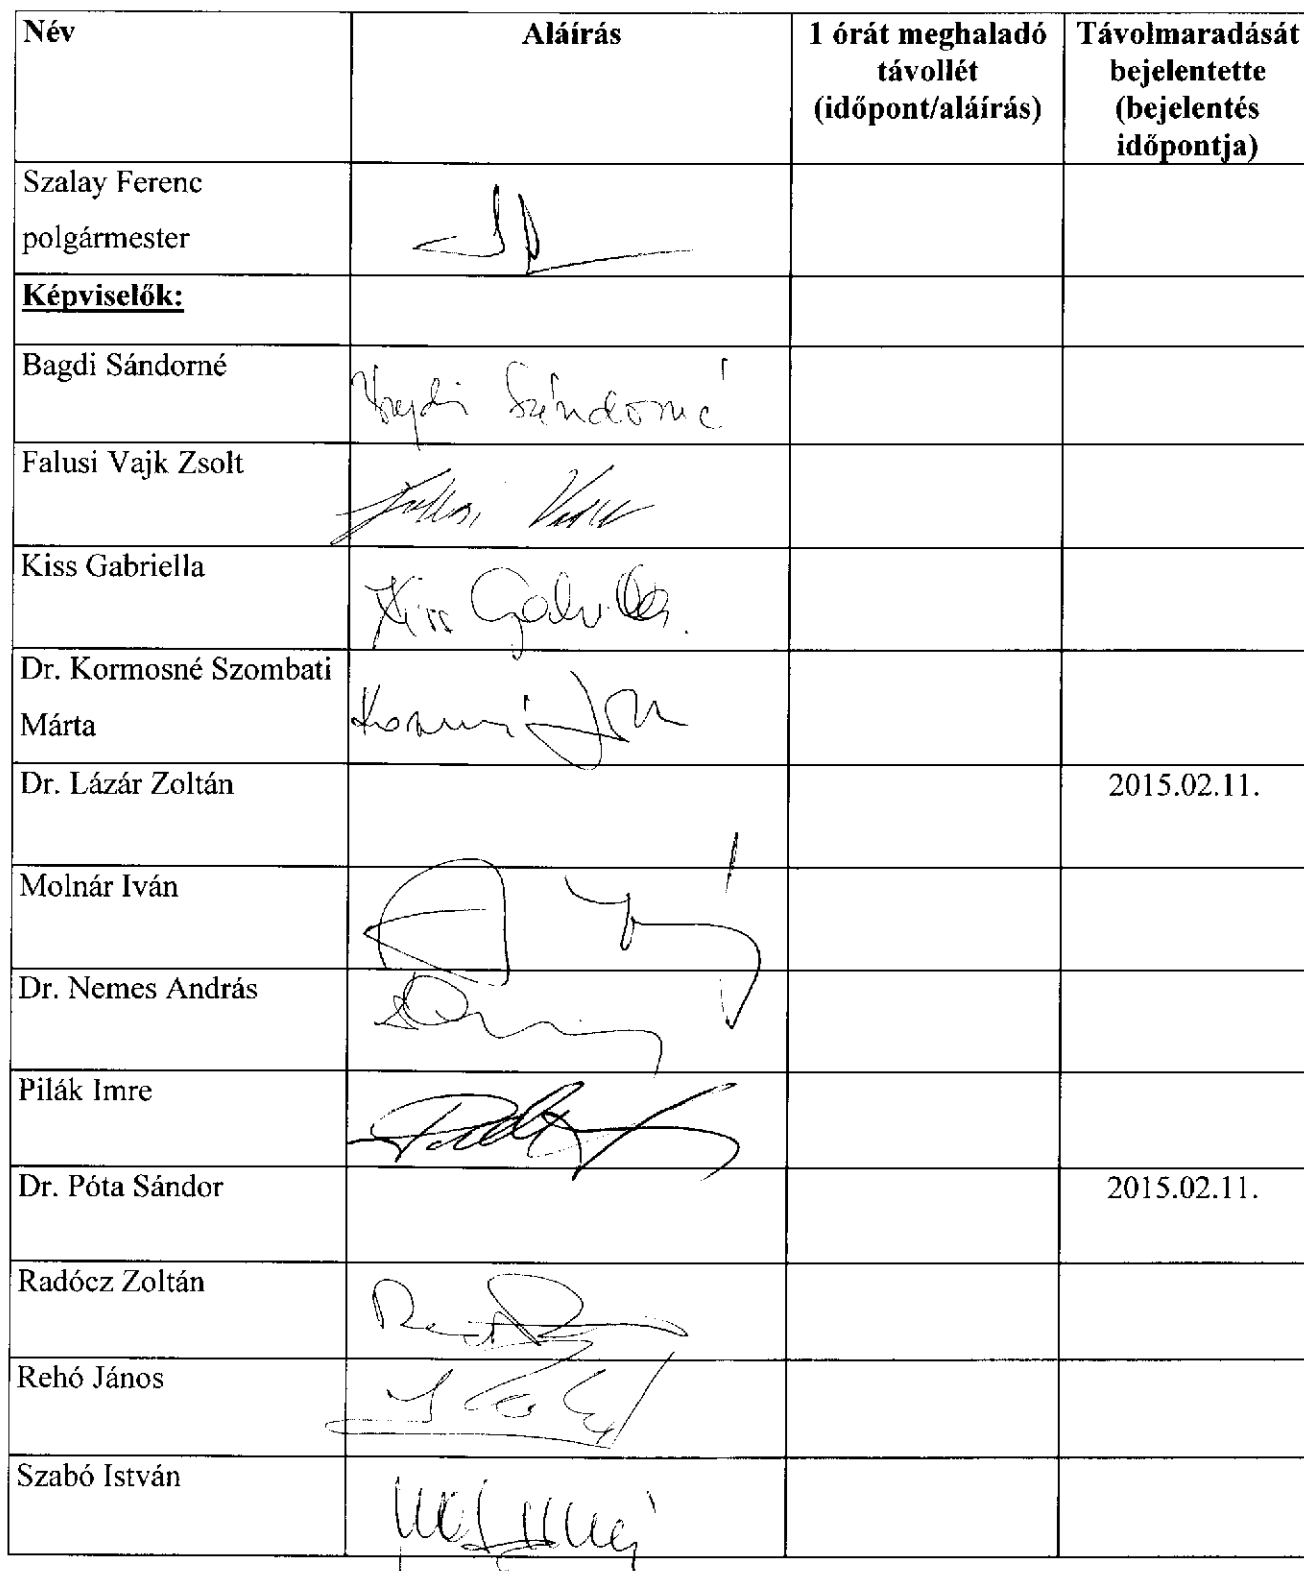 Név Aláírás 1 órát meghaladó Távolmaradását
távollét bejelentette
(időpont/aláírás) (bejelentés
időpontja)
Szalay Ferenc
polgármester
Képviselők:
Bagdi Sándorné
Bagdi Sándorné
Falusi Vajk Zsolt
Falusi Vajk
Kiss Gabriella
Kiss Gabriella
Dr. Kormosné Szombati
Márta
Dr. Lázár Zoltán 2015.02.11.
Molnár Iván
Dr. Nemes András
Pilák Imre
Dr. Póta Sándor 2015.02.11.
Radócz Zoltán
Rehó János
Szabó István